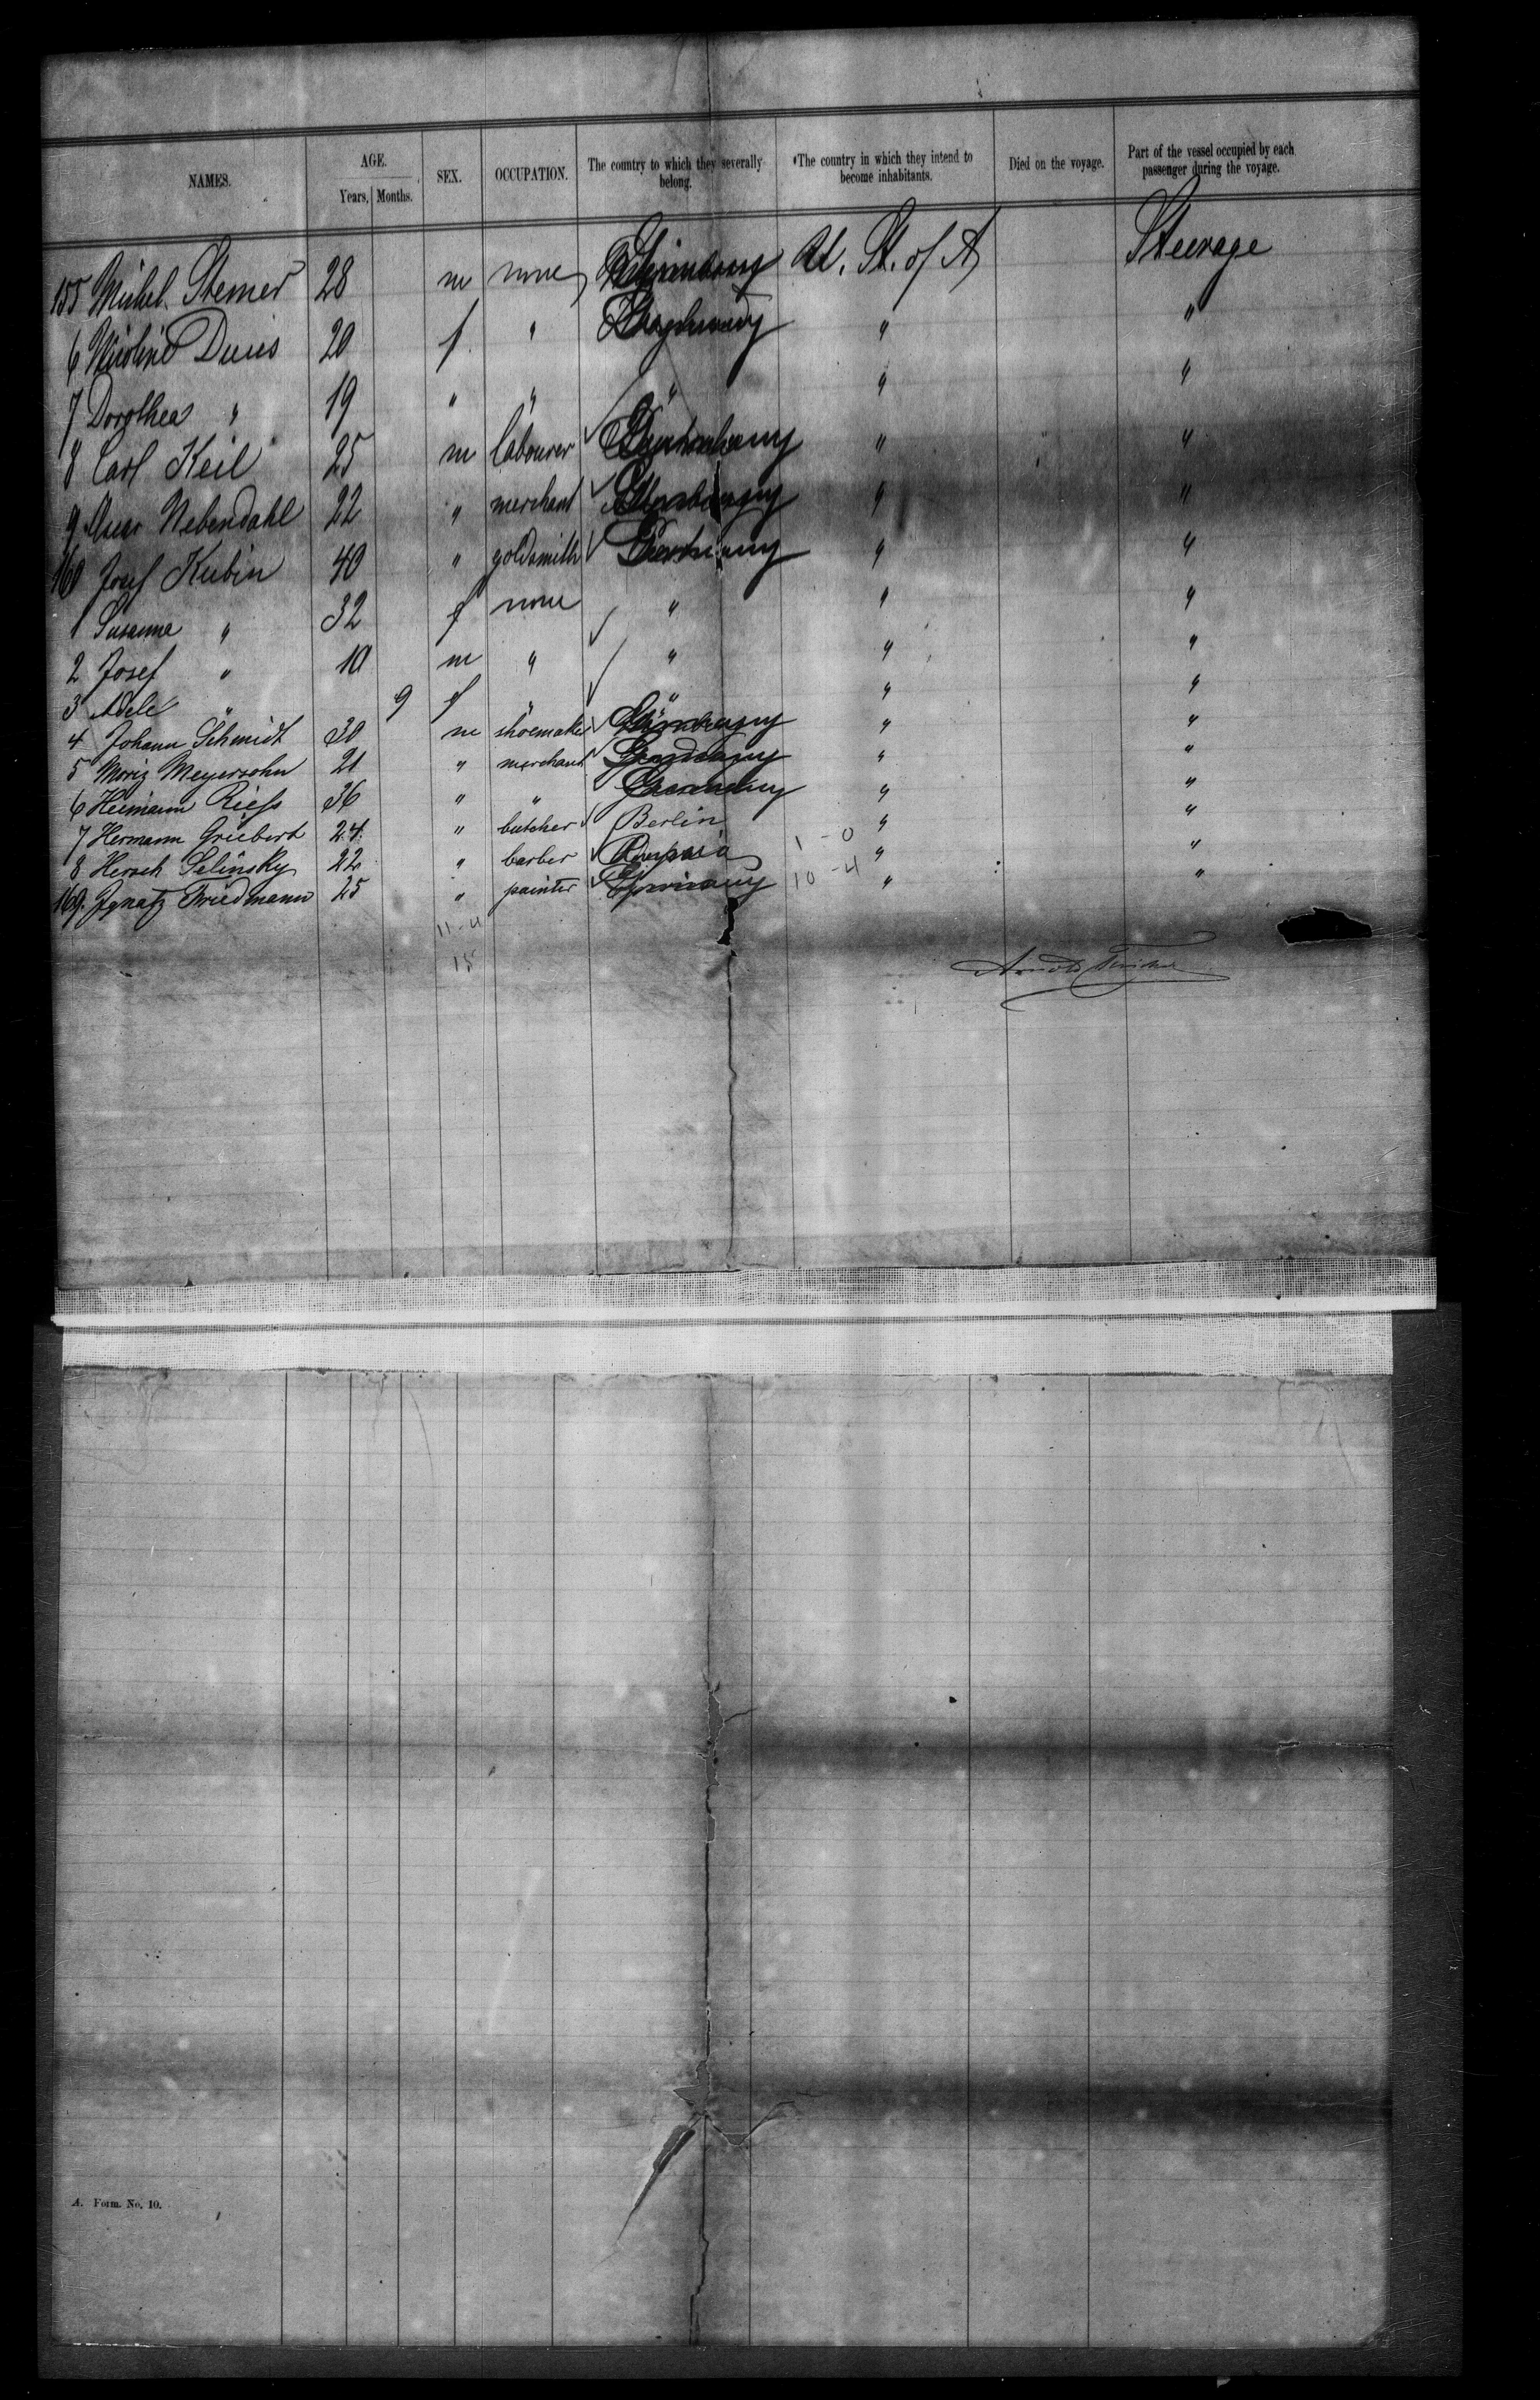 NAMES. AGE. Years, Months. SEX. OCCUPATION. The country to which they severally belong. *The country in which they intend to become inhabitants. Died on the voyage. Part of the vessel occupied by each passenger during the voyage.
155 Michel 28 m none U. St. of A Steerage
6 20 f " " "
7 Dorothea " 19 " " " " "
8 Carl Keil 25 m labourer " "
9 Nebendahl 22 " merchant " "
160 Josef Kubin 40 " goldsmith Germany " "
1 Susanna " 32 f none " " "
2 Josef " 10 m " " " "
3 Adele " 9 f " " " "
4 Johann Schmidt 30 m shoemaker Germany " "
5 Moriz Meyersohn 21 " merchant Germany " "
6 Heimann Riess 36 " " Germany " "
7 Hermann Griebert 24 " butcher Berlin " "
8 Hersch Selinsky 22 " barber Russia 1 - 0 " "
169. Ignatz Friedmann 25 " painter Germany 10 - 4 " "
11-4
15
Arnold
A. Form. No. 10.